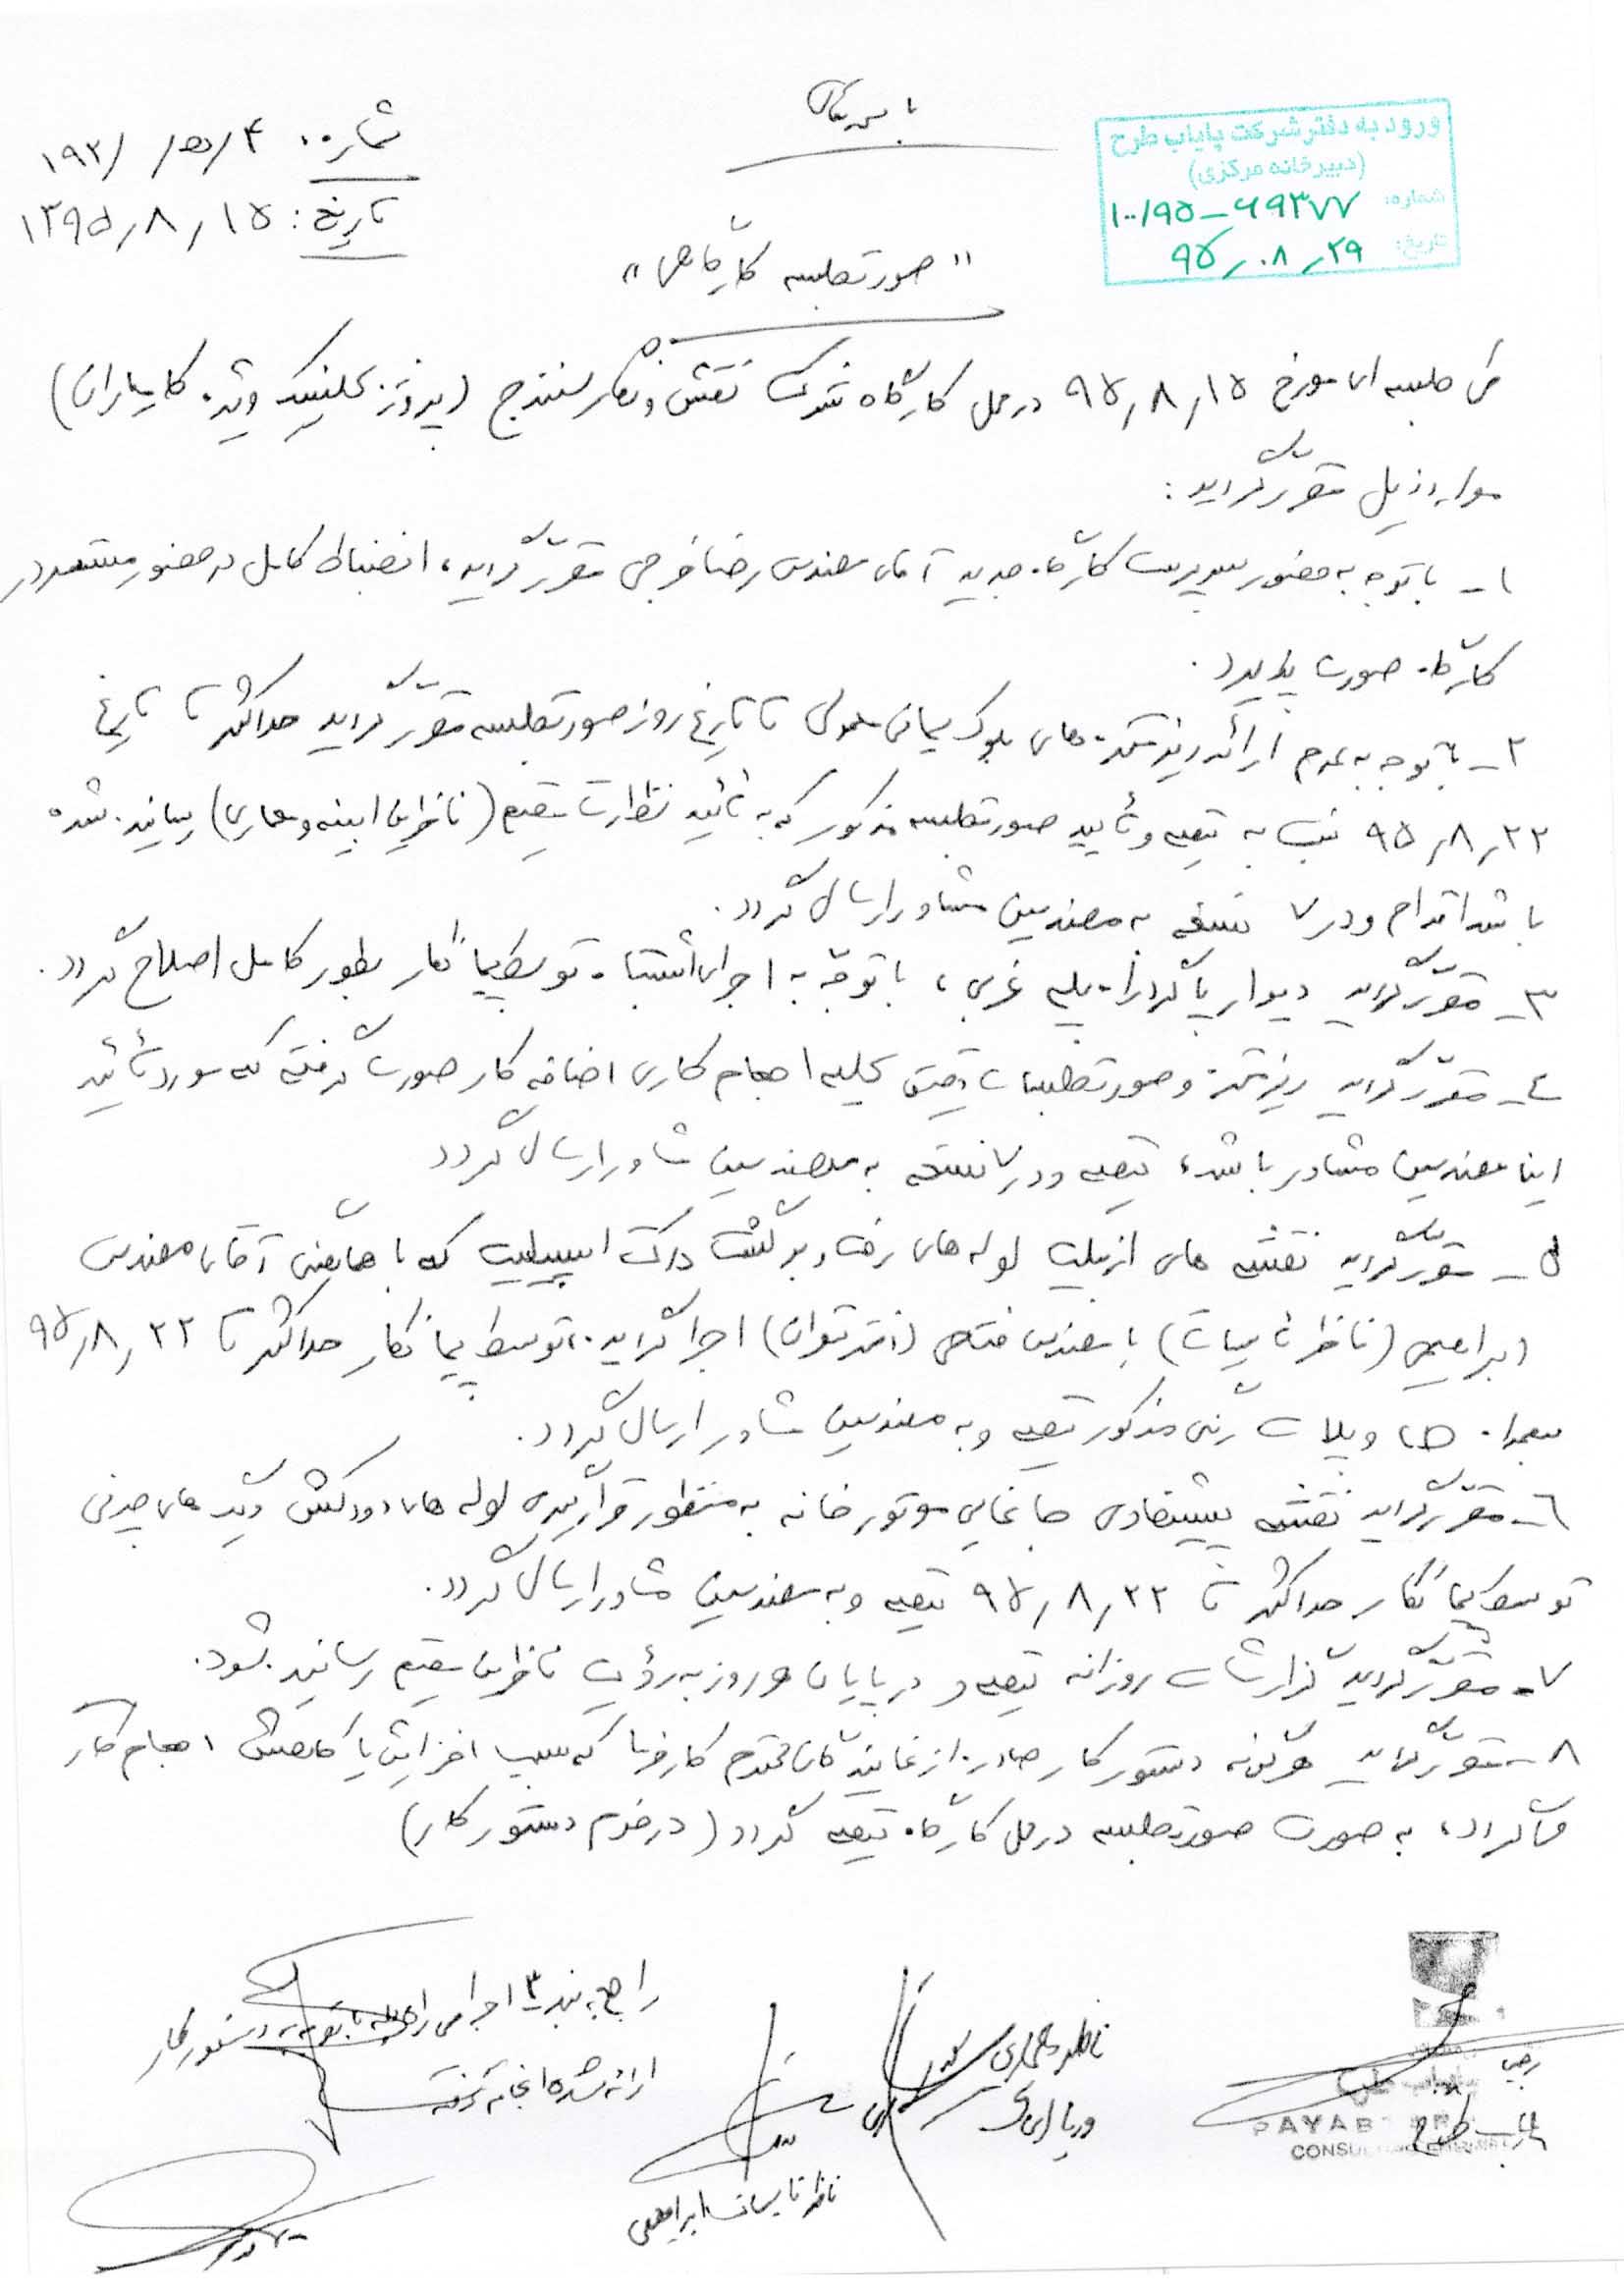 باسمه تعالی
شماره: ۱۹۲/ ص/ ۴
تاریخ: ۱۳۹۵٫۸٫۱۵
ورود به دفتر شرکت پایاب طرح
(دبیرخانه مرکزی)
شماره: ۱۰۰/۹۵-۶۹۳۷۷
تاریخ: ۹۵٫۰۸٫۲۹
"صورتجلسه کارگاهی"
طی جلسه ای مورخ ۹۵٫۸٫۱۵ در محل کارگاه شرکت نقش و نگار سنندج (پروژه کلینیک ویژه کامیاران)
موارد ذیل مقرر گردید:
۱- با توجه به حضور سرپرست کارگاه جدید آقای مهندس رضا فرجی مقرر گردید، انضباط کامل در حضور مستمر در
کارگاه صورت پذیرد.
۲- با توجه به عدم ارائه ریزمتره های بلوک سیمانی معمولی تا تاریخ روز صورتجلسه مقرر گردید حداکثر تا تاریخ
۹۵٫۸٫۲۲ نسبت به تهیه و تأیید صورتجلسه مذکور که به تائید نظارت مقیم (ناظرین ابنیه و معماری) رسانیده شده
باشد اقدام و در ۷ نسخه به مهندسین مشاور ارسال گردد.
۳- مقرر گردید دیوار پاگرد راه پله غربی، با توجه به اجرای اشتباه توسط پیمانکار بطور کامل اصلاح گردد.
۴- مقرر گردید ریزمتره و صورتجلسات دقیق کلیه احجام کاری اضافه کار صورت گرفته که مورد تائید
این مهندسین مشاور باشد، تهیه و در ۷ نسخه به مهندسین مشاور ارسال گردد
۵- مقرر گردید نقشه های ازبیلت لوله های رفت و برگشت داکت اسپیلیت که با هماهنگی آقای مهندس
ابراهیمی (ناظر تاسیسات) با مهندس فتاحی (دفتر توان) اجرا گردیده، توسط پیمانکار حداکثر تا ۹۵٫۸٫۲۲
بهمراه فایلات رنگی مذکور تهیه و به مهندسین مشاور ارسال گردد.
۶- مقرر گردید نقشه پیشنهادی جانمایی موتورخانه به منظور قرارگیری لوله های دودکش و دیگ های چدنی
توسط پیمانکار حداکثر تا ۹۵٫۸٫۲۲ تهیه و به مهندسین مشاور ارسال گردد.
۷- مقرر گردید گزارشات روزانه تهیه و در پایان هر روز به رؤیت ناظرین مقیم رسانیده شود.
۸- مقرر گردید هرگونه دستور کار صادره از نمایندگان محترم کارفرما که سبب افزایش یا کاهش احجام کار
می گردد، به صورت صورتجلسه در محل کارگاه تهیه گردد (در فرم دستور کار)
راجع به بند ۳ اجرای راه پله با توجه به دستور کار
ارائه شده انجام گرفته
ناظر معماری
ناظر تاسیسات ابراهیمی
رجبی
پایاب طرح
PAYAB
CONSU